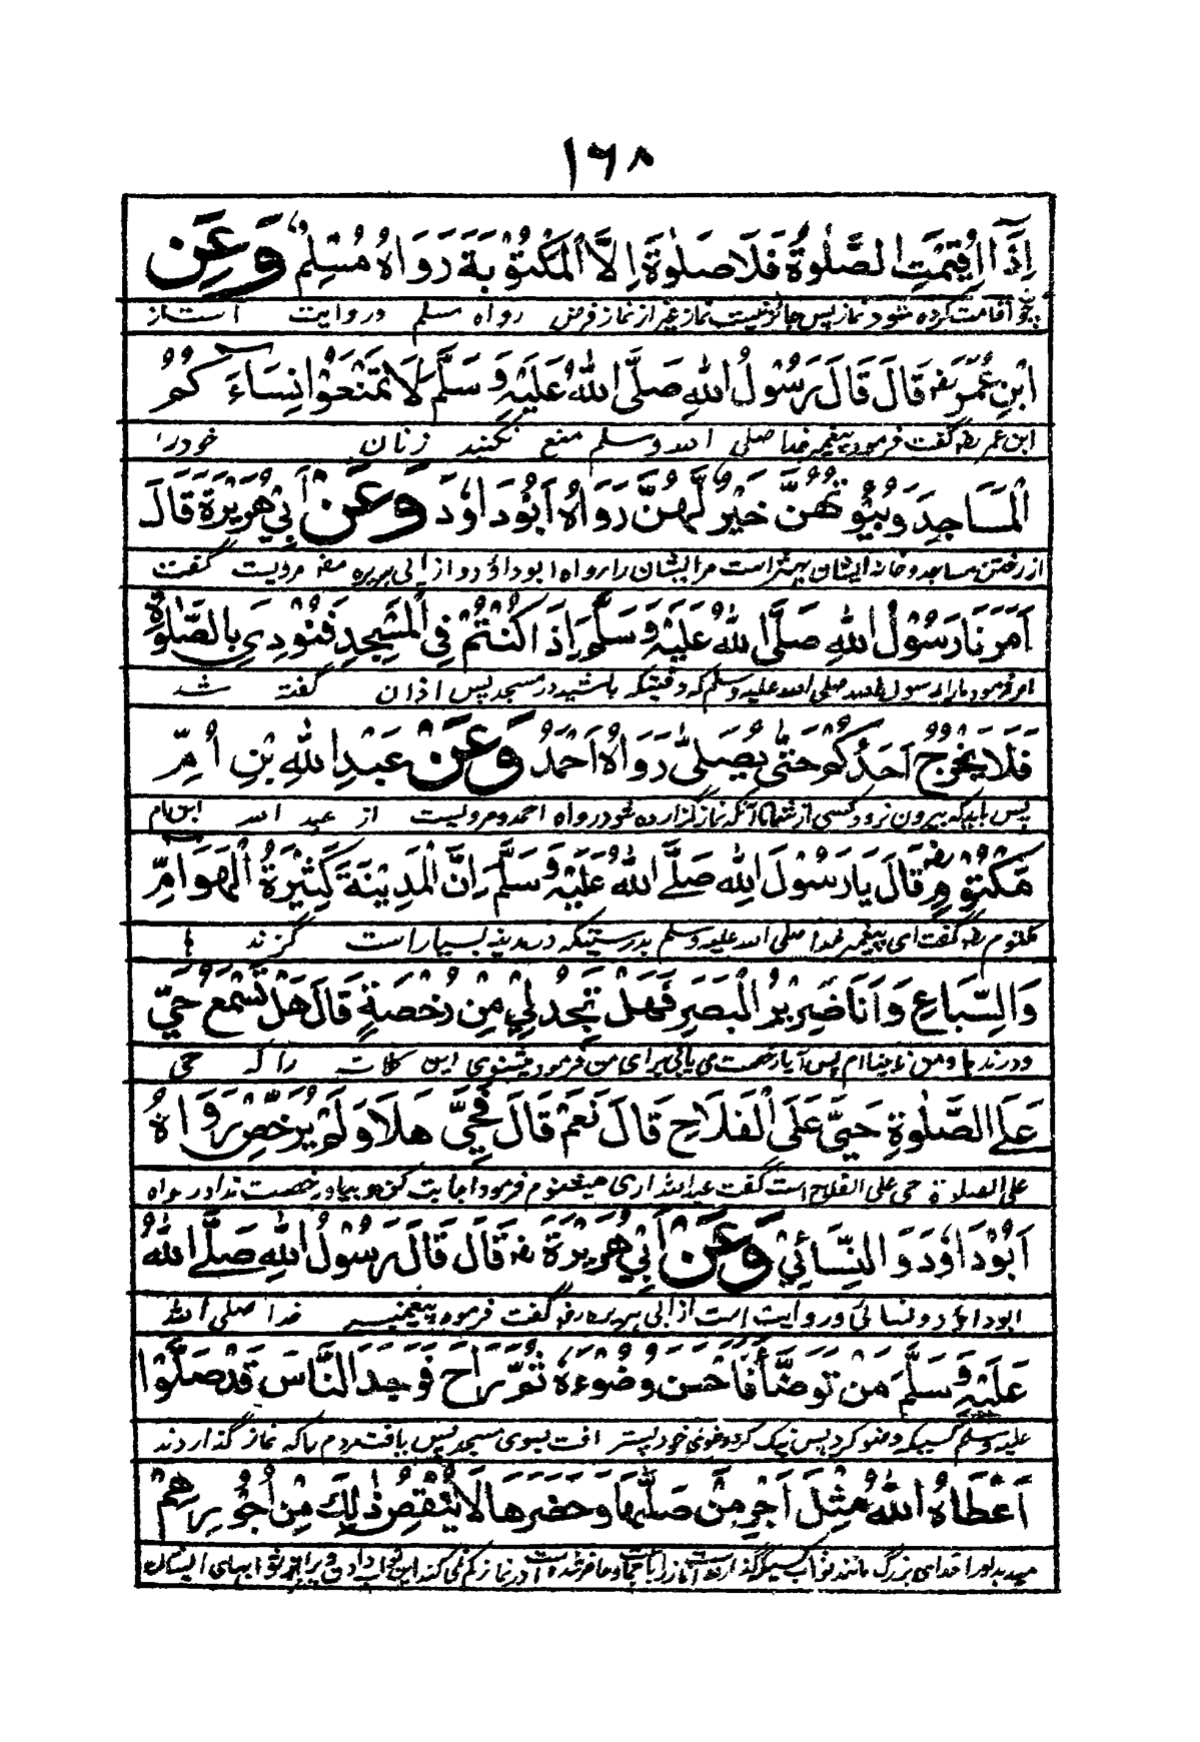 ١٦٨
اِذَا اُقِيْمَتِ الصَّلٰوةُ فَلَا صَلٰوةَ اِلَّا الْمَكْتُوْبَةَ رَوَاهُ مُسْلِمٌ وَعَنِ
چو اقامت كرده شود نماز پس جائز نيست نماز غير از نماز فرض رواه مسلم و روايت است از
ابْنِ عُمَرَ رضـ قَالَ قَالَ رَسُوْلُ اللهِ صَلَّى اللهُ عَلَيْهِ وَسَلَّمَ لَا تَمْنَعُوْا نِسَاءَ كُمُ
ابن عمر رضـ گفت فرمود پيغمبر خدا صلى الله وسلم منع نكنيد زنان خودرا
الْمَسَاجِدَ وَبُيُوْتُهُنَّ خَيْرٌ لَّهُنَّ رَوَاهُ اَبُوْدَاوٗدَ وَعَنْ اَبِيْ هُرَيْرَةَ قَالَ
از رفتن مساجد و خانه ايشان بهتر است مر ايشان را رواه ابوداؤد و از ابى هريره رضـ مرويست گفت
اَمَرَنَا رَسُوْلُ اللهِ صَلَّى اللهُ عَلَيْهِ وَسَلَّمَ اِذَا كُنْتُمْ فِي الْمَسْجِدِ فَنُوْدِيَ بِالصَّلٰوةِ
امر فرمود مارا رسول الله صلى الله عليه وسلم كه وقتيكه باشيد در مسجد پس اذان گفته شد
فَلَا يَخْرُجُ اَحَدُكُمْ حَتّٰى يُصَلِّيَ رَوَاهُ اَحْمَدُ وَعَنْ عَبْدِ اللهِ بْنِ اُمِّ
پس بايد كه بيرون نرود كسى از شما تا آنكه نماز گزارده شود رواه احمد و مرويست از عبد الله ابن ام
مَكْتُوْمٍ رضـ قَالَ يَا رَسُوْلَ اللهِ صَلَّى اللهُ عَلَيْهِ وَسَلَّمَ اِنَّ الْمَدِيْنَةَ كَثِيْرَةُ الْهَوَامِّ
مكتوم رضـ گفت اى پيغمبر خدا صلى الله عليه وسلم بدرستيكه در مدينه بسيار است گزند ها
وَالسِّبَاعِ وَاَنَا ضَرِيْرُ الْبَصَرِ فَهَلْ تَجِدُ لِيْ مِنْ رُخْصَةٍ قَالَ هَلْ تَسْمَعُ حَيَّ
و درند ها و من نابينا ام پس آيا رخصت مى يابى براى من فرمود ميشنوى اين كلمات را كه حى
عَلَى الصَّلٰوةِ حَيَّ عَلَى الْفَلَاحِ قَالَ نَعَمْ قَالَ فَحَيَّ هَلَا وَلَمْ يُرَخِّصْ رَوَاهُ
على الصلوة حى على الفلاح است گفت عبدالله ارى ميشنوم فرمود اجابت كن و بيا و رخصت نداد رواه
اَبُوْدَاوٗدَ وَالنَّسَائِيُّ وَعَنْ اَبِيْ هُرَيْرَةَ رضـ قَالَ قَالَ رَسُوْلُ اللهِ صَلَّى اللهُ
ابوداؤد و نسائى و روايت است از ابى هريره رضـ گفت فرموده پيغمبر خدا صلى الله
عَلَيْهِ وَسَلَّمَ مَنْ تَوَضَّأَ فَاَحْسَنَ وُضُوْءَهٗ ثُمَّ رَاحَ فَوَجَدَ النَّاسَ قَدْ صَلَّوْا
عليه وسلم كسيكه وضو كرد پس نيك كرد وضوى خود پستر رفت بسوى مسجد پس يافت مردم را كه نماز گذاردند
اَعْطَاهُ اللهُ مِثْلَ اَجْرِ مَنْ صَلَّاهَا وَحَضَرَهَا لَا يَنْقُصُ ذٰلِكَ مِنْ اُجُوْرِهِمْ
ميدهد اورا خداى بزرگ مانند ثواب كسيكه گذارده است آنماز را بجماعت و حاضر شده است